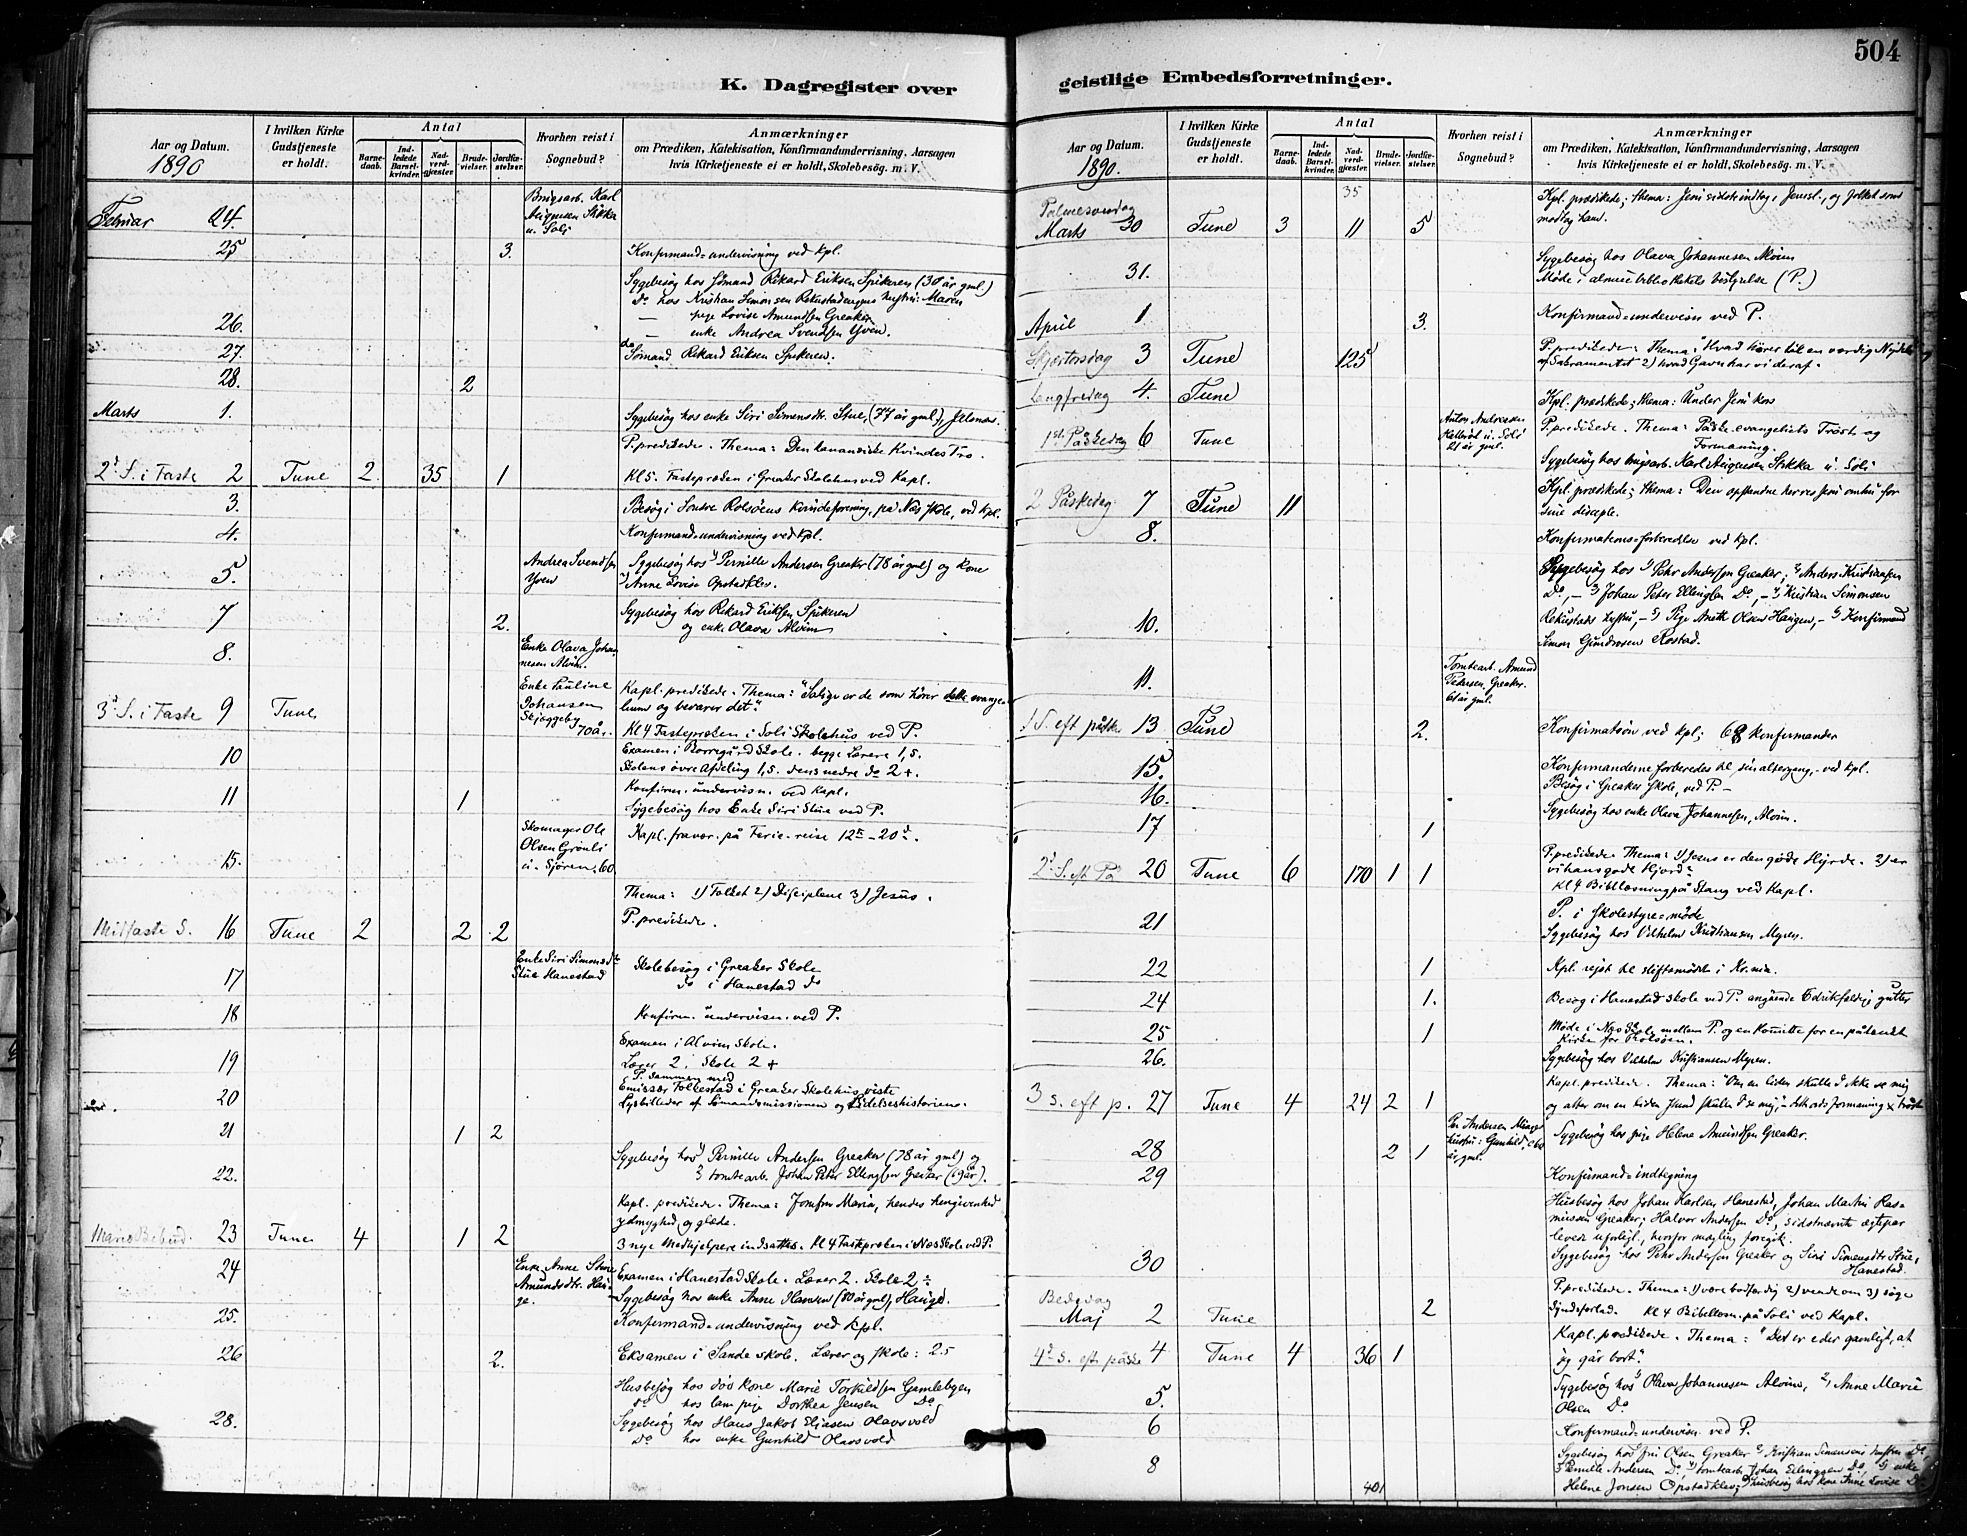 504
K. Dagregister over
geistlige Embedsforretninger.
Aar og Datum.
1890
I hvilken Kirke
Gudstjeneste
er holdt.
Antal
Barne-
daab.
Ind-
ledede
Barsel-
kvinder.
Nad-
verd-
gjæster.
Brude-
vielser.
Jordfæ-
stelser.
Hvorhen reist i
Sognebud?
Anmærkninger
om Prædiken, Katekisation, Konfirmandundervisning, Aarsagen
hvis Kirketjeneste ei er holdt, Skolebesøg. m. V.
Februar 24. Brugsarb. Karl
Stikka
u. Soli
25 3. Konfirmand=undervisning ved Kpl.
Sygebesøg hos Sömand Rikard Eriksen Spikeren (30 år gml.)
Do hos Kristian Simonsen Rekustadengens hustru: Maren
26. — pige Lovise Amundsen Greaker
— enke Andrea Svendsen Yven.
27. do Sömand Rikard Eriksen Spikeren.
28. 2
Marts 1. Sygebesøg hos enke Siri Simensdt. Stue, (77 år gml),
P. predikede. Thema: Den kananæiske Kvindes Tro.
2d S. i Faste 2 Tune 2 35 1 Kl 5. Fastepræken i Greaker Skolehus ved Kapl.
3. Besøg i Søndre Rolsøens Kvindeforening, på Næs skole, ved Kpl.
4. Konfirmand=undervisning ved Kpl.
5. Andrea Svendsen
Yven
Sygebesøg hos 1) Pernille Andersen Greaker (78 år gml) og kone
2) Anne Lovise Opstadklev.
7 2. Sygebesøg hos Rikard Eriksen Spikeren
og enke Olava Alvim
8. Enke Olava Johan-
nesen Alvim.
3d S. i Faste 9 Tune Enke Pauline
Johansen
Skjøggeby
70 år.
Kapl. predikede. Thema: "Salige er de som hører dette evange-
lium og bevarer det".
Kl 4 Fastepræken i Soli Skolehus ved P.
10 Examen i Borregård Skole. begge Lærere 1,5.
Skolens øvre Afdeling 1,5. dens nedre do 2+.
11 1 Konfirm. undervisn. ved Kapl.
Sygebesøg hos Enke Siri Stue ved P.
15. Skomager Ole
Olsen Grönli
u. Sjøren. 60
Kapl. fravær. på Ferie-reise 12te-20d.
Thema: 1) Folket 2) Disciplene 3) Jesus.
Midfaste S. 16 Tune 2 2 2 P. predikede.
17 Enke Siri Simensdt
Stue Hanestad
Skolebesøg i Greaker Skole
do i Hanestad do
18 Konfirm. undervisn. ved P.
19 Examen i Alvim Skole.
Lærer 2. Skole 2+
20 P. sammen med
Emissær Folkestad i Greaker Skolehus viste
Lysbilleder af Sømandsmissionen og Lidelseshistorien.
21 1 2
22. Sygebesøg hos 1) Pernille Andersen Greaker (78 år gml) og
2) tomtearb. Johan Peter Ellingsen Greaker (19 år).
Mariæ Bebud. 23 Tune 4 1 2 Kapl. predikede. Thema: Jomfru Maria, hendes hengivenhed
ydmyghed og glæde.
3 nye Medhjelpere indsattes. Kl 4 Fastepræken i Næs Skole ved P.
24 Enke Anne
Amundsdtr. Hau-
ge.
Examen i Hanestad Skole. Lærer 2. Skole 2÷
Sygebesøg hos enke Anne Hansen (80 år gml), Hauge.
25. Konfirmand=undervisning ved Kpl.
26 2. Eksamen i Sande skole. Lærer og skole: 2.5
Husbesøg hos döv kone Marie Torkildsen Gamlebyen
do hos lam pige Dorthea Jensen Do
28. Sygebesøg hos Hans Jakob Eliasen Olavsvold
Do hos enke Gunhild Olavsvold
Aar og Datum.
1890.
I hvilken Kirke
Gudstjeneste
er holdt.
Antal
Barne-
daab.
Ind-
ledede
Barsel-
kvinder.
Nad-
verd-
gjæster.
Brude-
vielser.
Jordfæ-
stelser.
Hvorhen reist i
Sognebud?
Anmærkninger
om Prædiken, Katekisation, Konfirmandundervisning, Aarsagen
hvis Kirketjeneste ei er holdt, Skolebesøg. m. V.
35
Palmesøndag
Marts 30 Tune 3 11 5 Kpl. prædikede; thema: Jesu sidste indtog i Jerusl., og folket som
modtog ham.
31. Sygebesøg hos Olava Johannesen Alvim
Møde i almuebibliothekets bestyrelse (P.)
April 1 3. Konfirmand=undervisn ved P.
Skjærtorsdag 3 Tune 125 P. predikede. Thema: "Hvad hører til en værdig Nydelse
af Sakramentet 2) hvad Gavn har vi deraf.
Langfredag 4. Tune Kpl. prædikede; thema: Under Jesu kors
1ste Påskedag 6 Tune Anton Andreasen
u. Soli
år gml.
P. predikede. Thema: Påske-evangeliets Trøst og
Formaning.
Sygebesøg hos brugsarb. Karl Stikka u. Soli
2 Påskedag 7 Tune 11 Kpl. prædikede; thema: Den opstandne herres Jesu omhu for
sine disciple.
8. Konfirmations=forberedelse ved Kpl.
10. Sygebesøg hos 1) Pehr Andersen Greaker, 2) Anders Kristiansen
Do, — 3) Johan Peter Ellingsen Do, — 4) Kristian Simonsen
Rekustads hustru, — 5) Pige Anette Olsen Haugen, — 6) Konfirmand
Simon Gundersen Rostad.
11. Tomtearb. Amund
Pedersen, Greaker.
61 år gml.
1 S. eft påske 13 Tune 2. Konfirmation ved Kpl; 68 konfirmander
15. Konfirmanderne forberedes til sin altergang, ved Kpl.
16. Besøg i Greaker Skole, ved P.
17 1 Sygebesøg hos enke Olava Johannesen, Alvim.
2d S. eft På 20 Tune 6 170 1 1 P. predikede. Thema: 1) Jesus er den gode Hyrde. 2) er
vi hans gode Hjord?
Kl 4 Bibellæsning på Stang ved Kapl.
21 P. i Skolestyre=møde
Sygebesøg hos Vilhelm Kristiansen Myren.
22 1 Kpl. rejst til stiftsmødet i Kr.nia.
24 1. Besøg i Hanestad skole ved P. angående gutter
25 1 Møde i Næs Sk. mellem P. og en Komitte for en påtænkt
Kirke for Rolsøen.
26. Sygebesøg hos Vilhelm Kristiansen Myren.
3 S. eft p. 27 Tune 4 24 2 1 Kapl. predikede. Thema: "Om en liden skulle I ikke se mig
og atter om en liden stund skulle I se mig," dets ords formaning & trøst
28 2 1 Per Andersen
hustru: Gunhild, 60
år gml.
Sygebesøg hos pige Helene Amundsen Greaker.
29 Konfirmand=indtegning
30 Husbesøg hos Johan Karlsen Hanestad, Johan Martin Ras-
mussen Greaker; Halvor Andersen Do; sidstnævnte ægtepar
lever uforligt, hvorfor mægling foregik.
Sygebesøg hos Pehr Andersen Greaker og Siri Simensdtr Stue,
Hanestad.
Bededag
Maj 2 Tune 2 P. predikede. Thema: 1) være bodfærdig 2) vende om 3) søge
Syndsforlad. Kl 4 Bibellæsn. på Soli ved Kapl.
4d S. eft påske 4 Tune 4 36 1 Kapl. predikede. Thema: "Det er eder gavnligt, at
jeg går bort".
5. Sygebesøg hos 1) Olava Johannesen Alvim, 2) Anne Marie
Olsen Do
6 Konfirmand=undervisn ved P.
8 Sygebesøg hos Olsen Greaker 2) Kristian Simensens hustru Do
3) Pernille Andersen Do, 4) tomtearb. Johan Ellingsen Do, 5) enke
Helene Jonsen Opstadklev; Husbesøg hos kone Anne Lovise Do
401